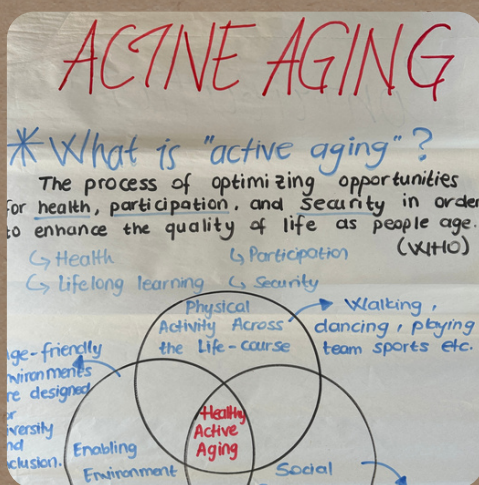 ACTIVE AGING
* What is "active aging"?
The process of optimizing opportunities
for health, participation, and security in order
to enhance the quality of life as people age.
(WHO)
↳ Health
↳ Participation
↳ Lifelong learning
↳ Security
Physical
Activity Across
the Life-course
Walking,
dancing, playing
team sports etc.
age-friendly
environments
are designed
for
diversity
and
inclusion.
Healthy
Active
Aging
Enabling
Environment
Social